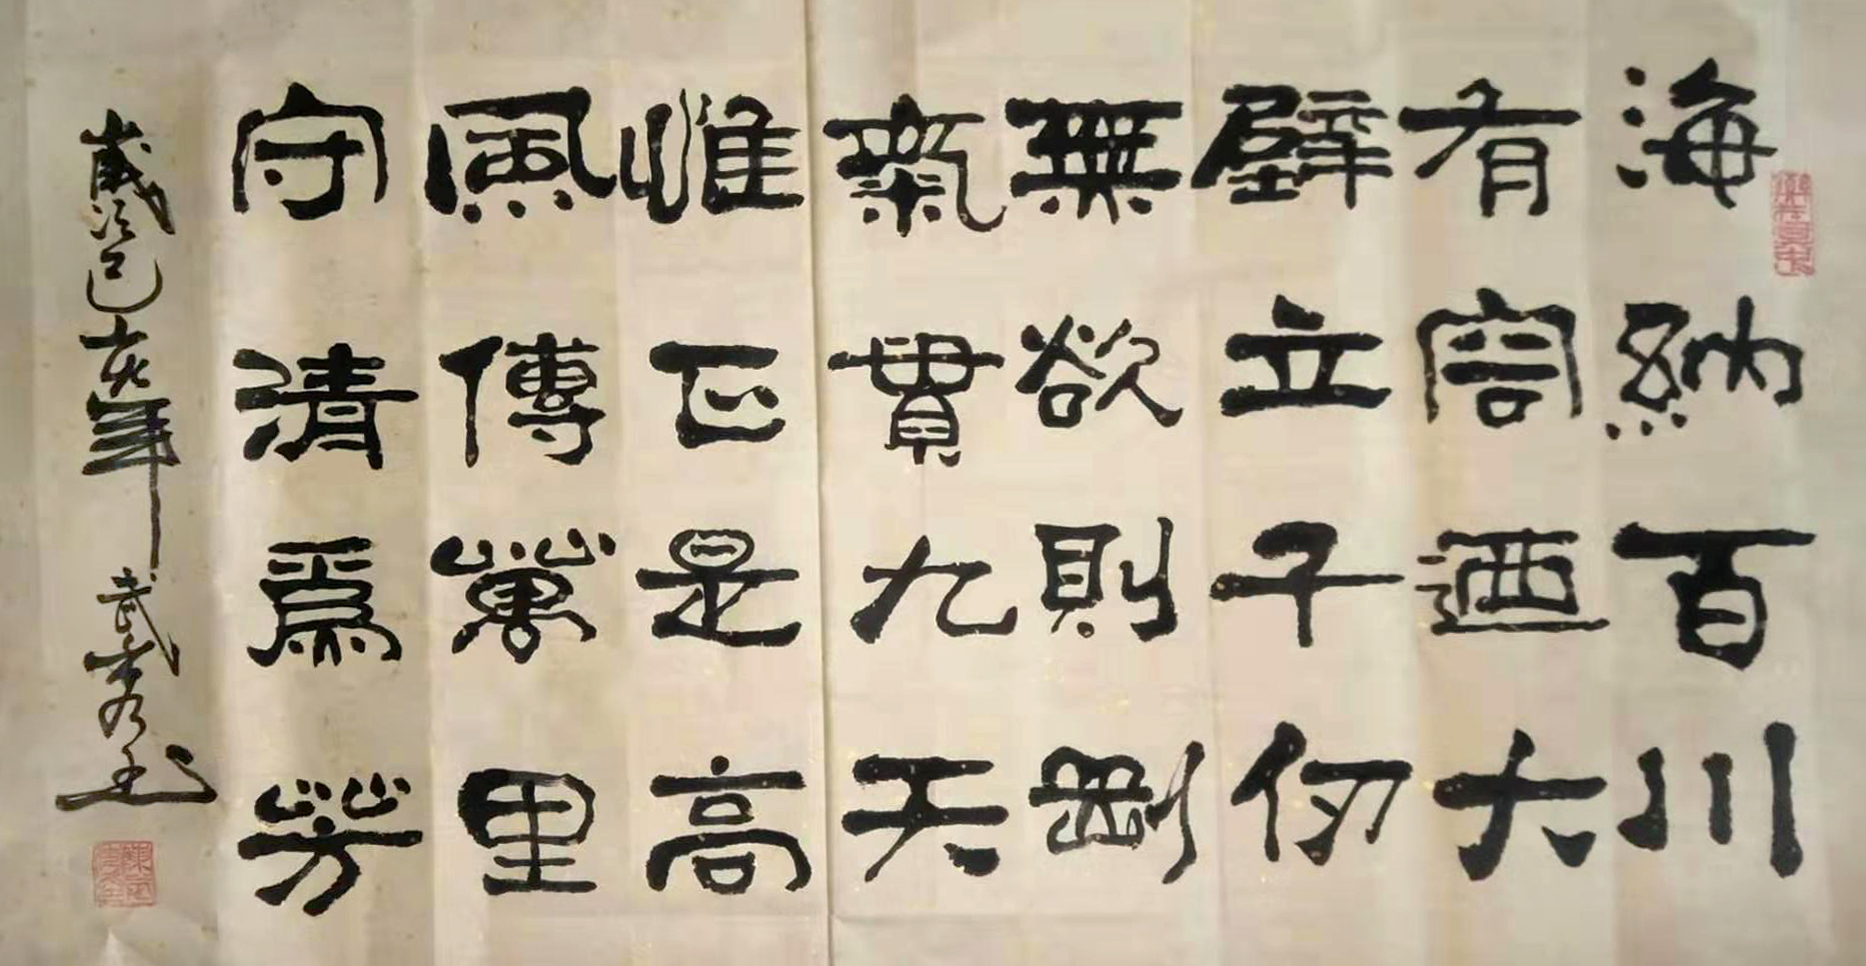 海納百川
有容迺大
壁立千仞
無欲則剛
氣貫九天
惟正是高
風傳萬里
守清爲芳
歲次己亥年